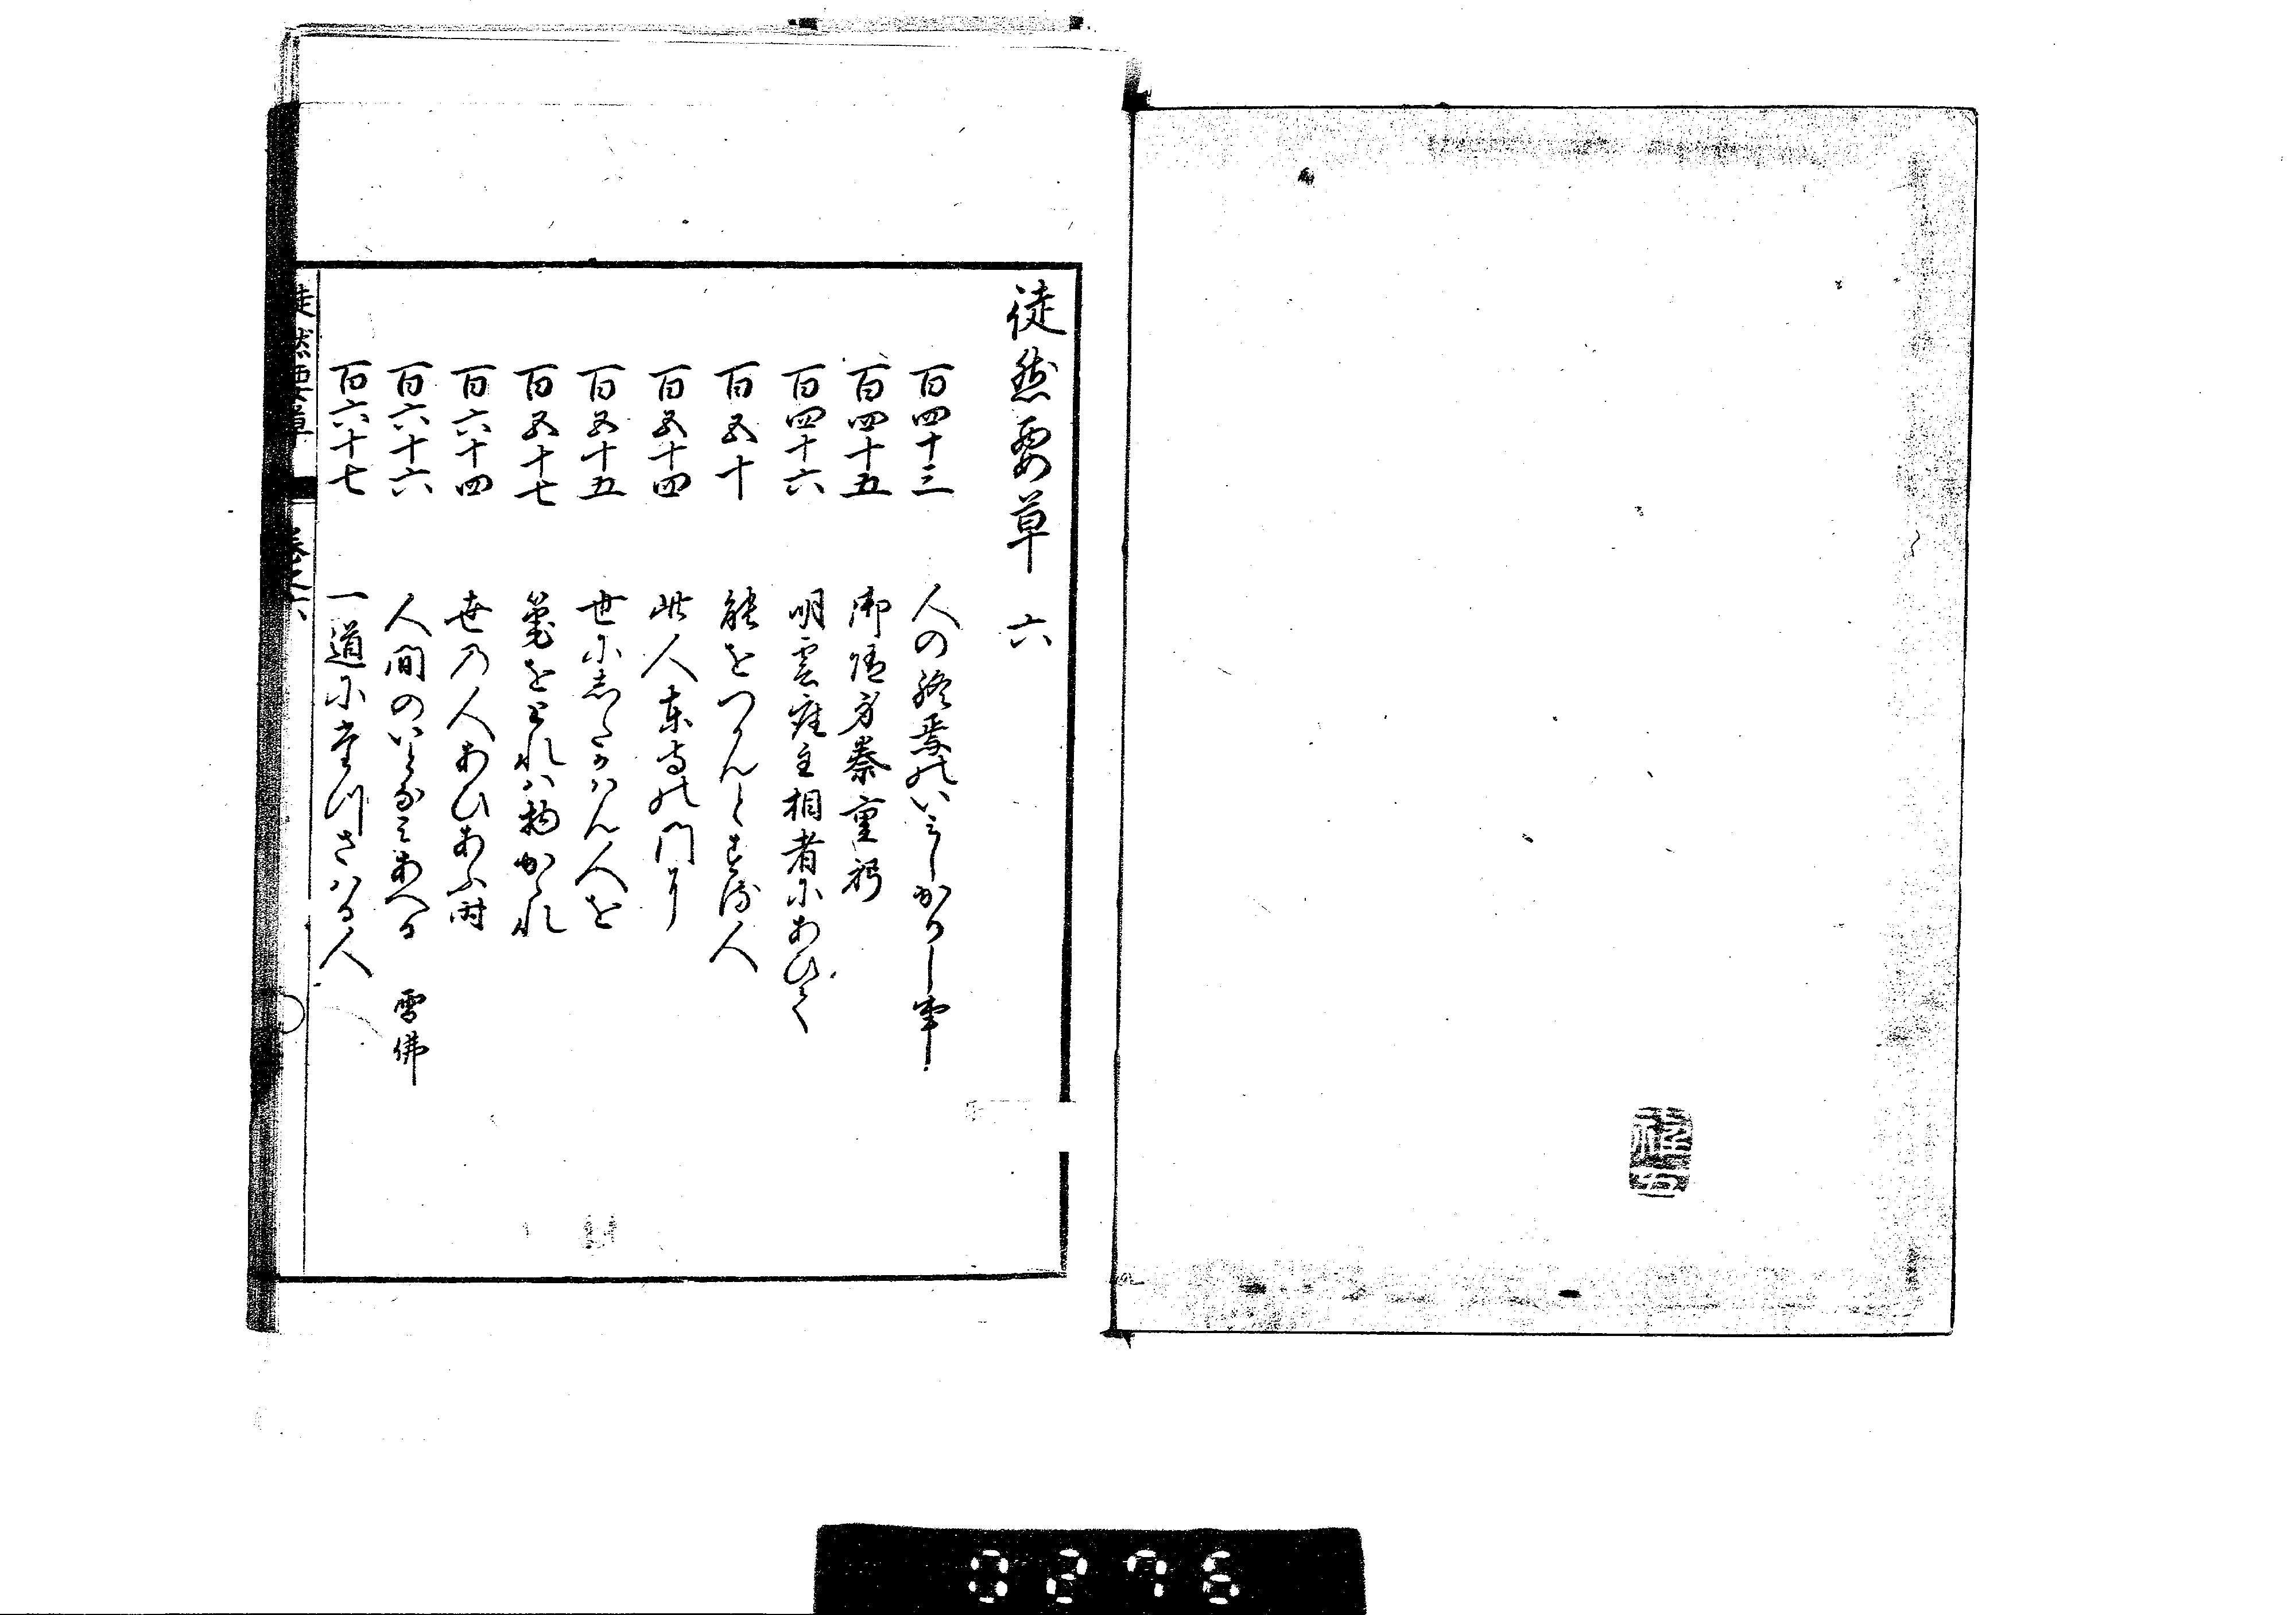 徒然要草 六
百四十三 人の終焉のいみしかりし事
百四十五 御随身秦重躬
百四十六 明雲座主相者にあひて
百五十 能をつかんとする人
百五十四 此人東寺の門に
百五十五 世にしたかはん人を
百五十七 筆をとれは物かゝれ
百六十四 世の人あひあふ時
百六十六 人間のいとなみあへる 雪佛
百六十七 一道にたつさはる人
徒然要草 巻之六
0276